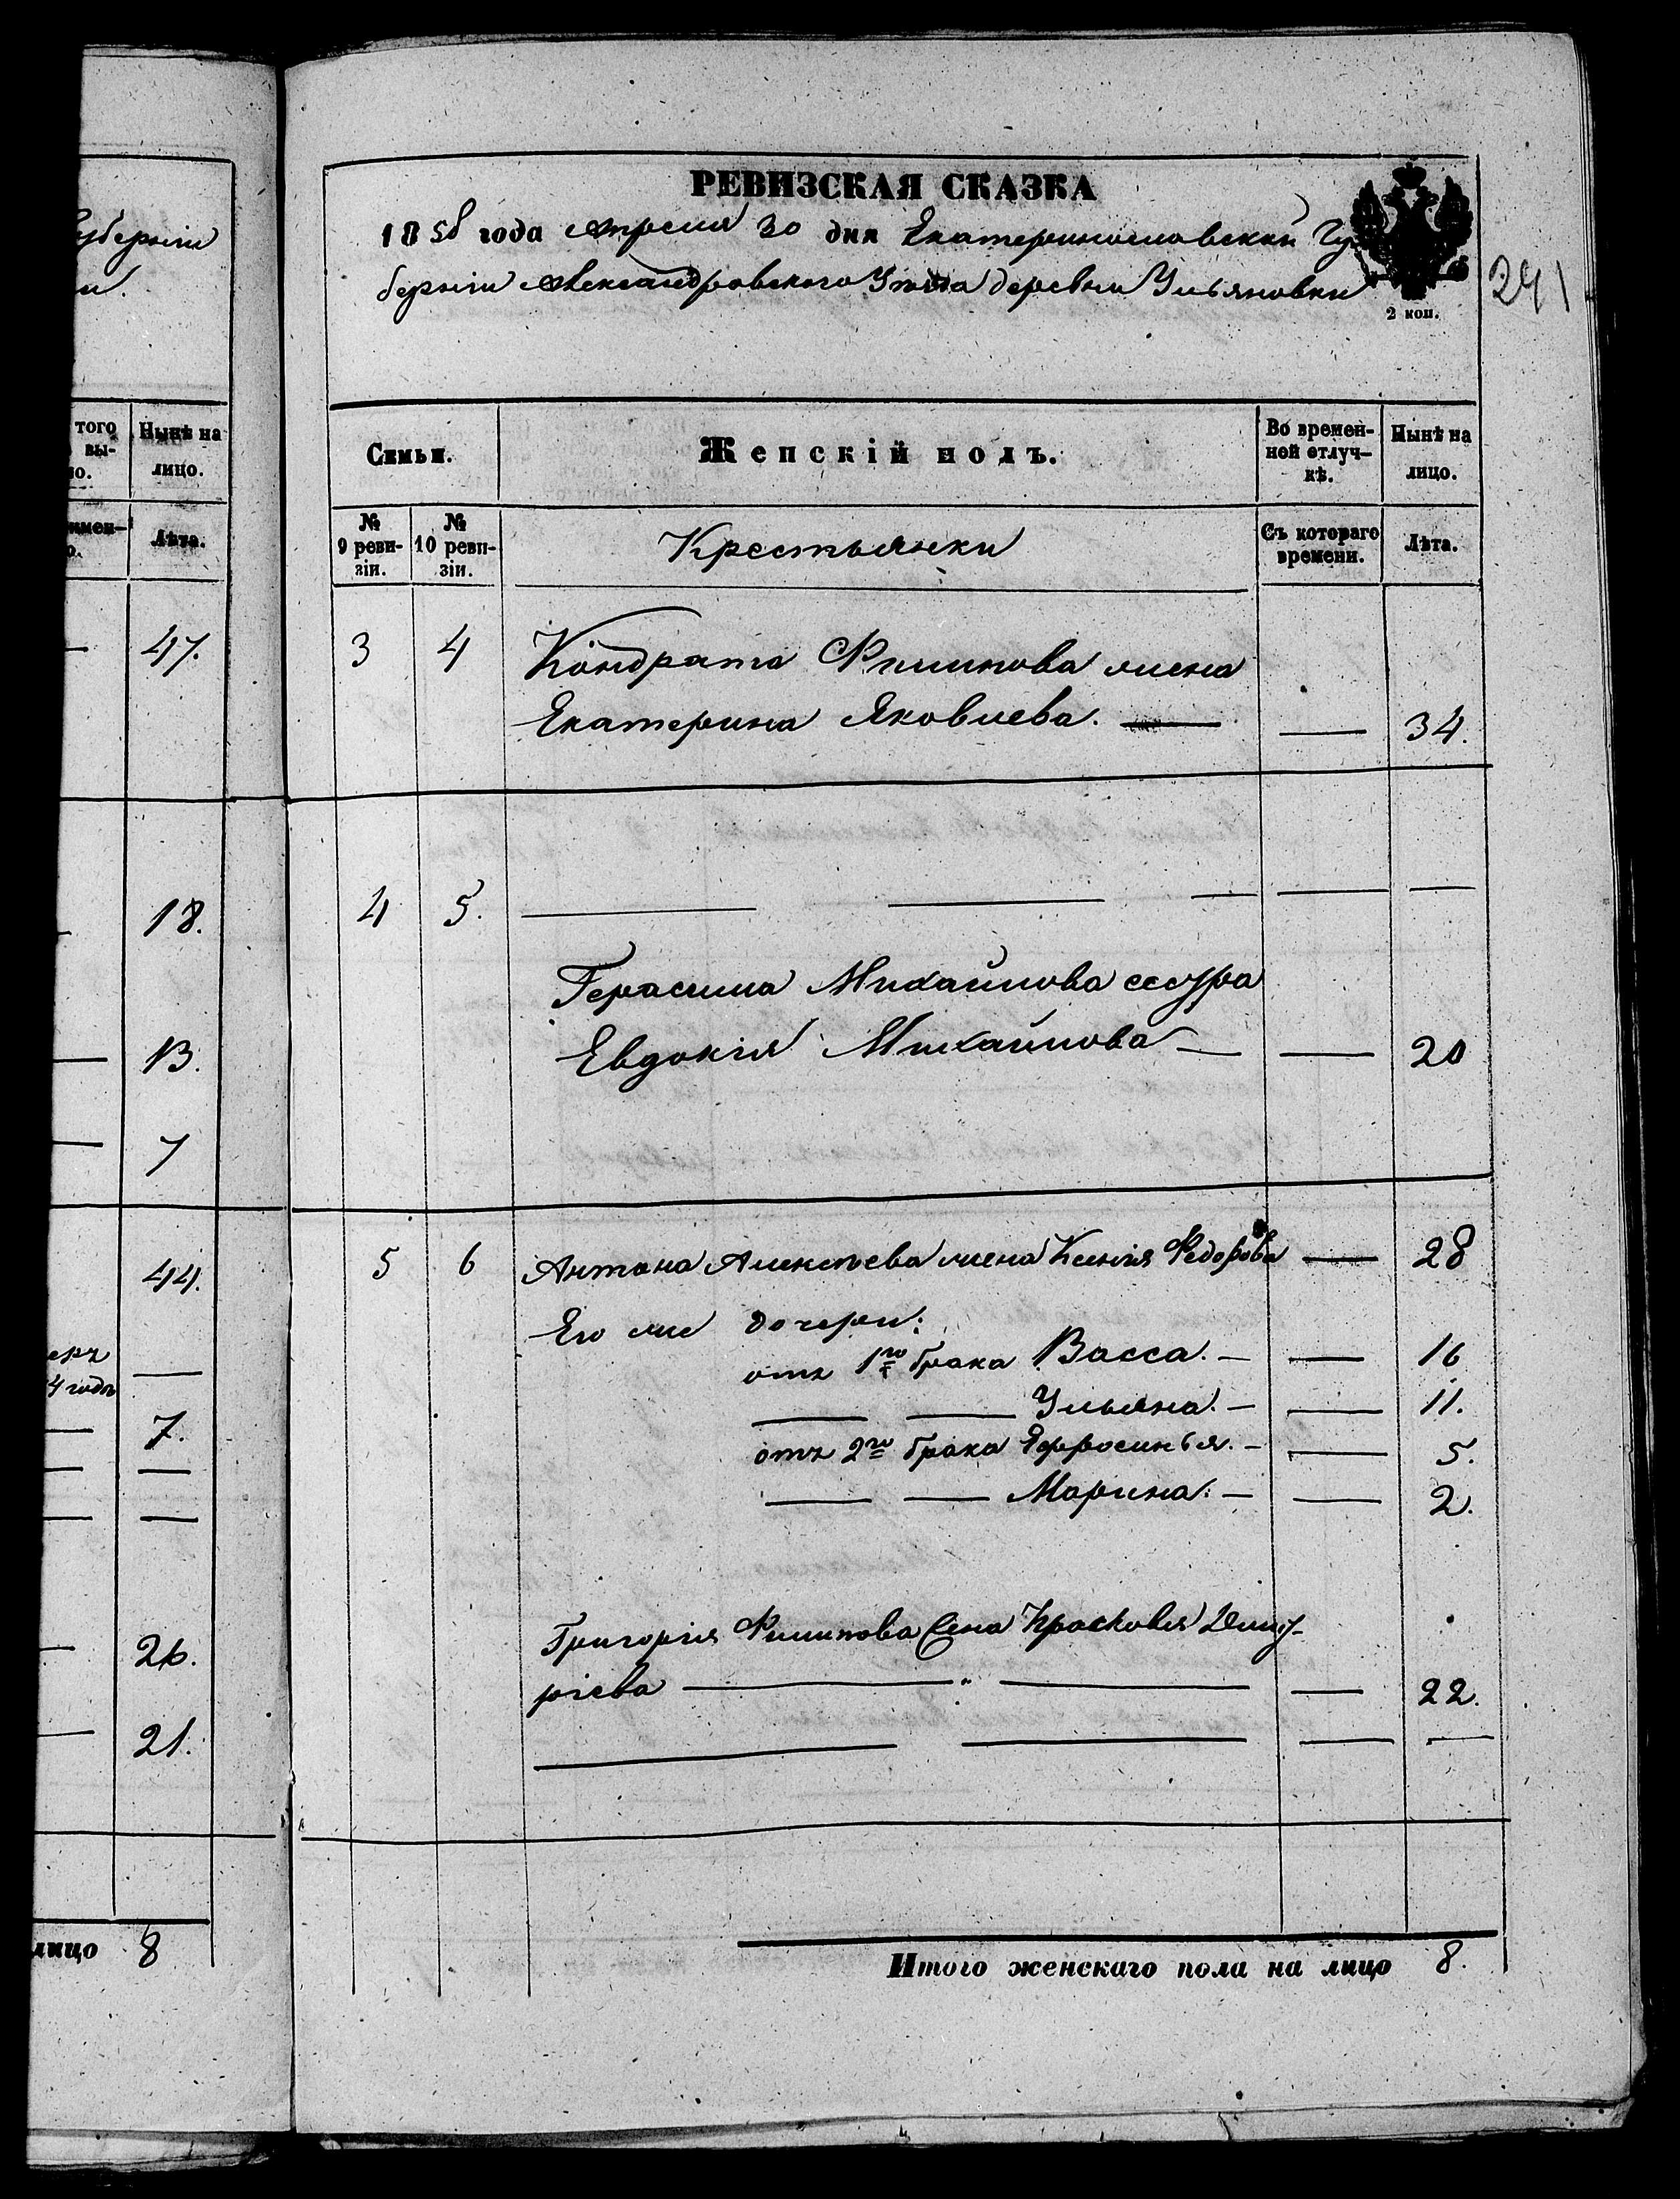 уберніи
и.
того
вы-
ло.
Нынѣ на
лицо.
Лѣта.
47.
18.
13.
7
44.
4 годъ
7.
26.
21.
лицо 8
РЕВИЗСКАЯ СКАЗКА
1858 года Апреля 30 дня Екатеринославской Гу-
берніи Александровского Уѣзда деревни Ульяновки
2 коп.
241
Семьи.
Женскій полъ.
Во времен-
ной отлуч-
кѣ.
Нынѣ на
лицо.
№
9 реви-
зіи.
№
10 реви-
зіи.
Крестьянки
Съ котораго
времени.
Лѣта.
3 4 Кондрата Филипова жена
Екатерина Яковлева. — — 34.
4 5. — — — — —
Герасима Михайлова сестра
Евдокія Михайлова — — 20
5 6 Антона Алексѣева жена Ксенія Федорова — 28
Его же дочери:
отъ 1го брака Васса. — — 16
— — Ульяна. — — 11.
отъ 2го брака Ефросинья. — — 5.
— — Марина. — — 2.
Григорія Филипова жена Прасковья Дмит-
ріева — " — — 22.
— — — —
Итого женскаго пола на лицо 8.